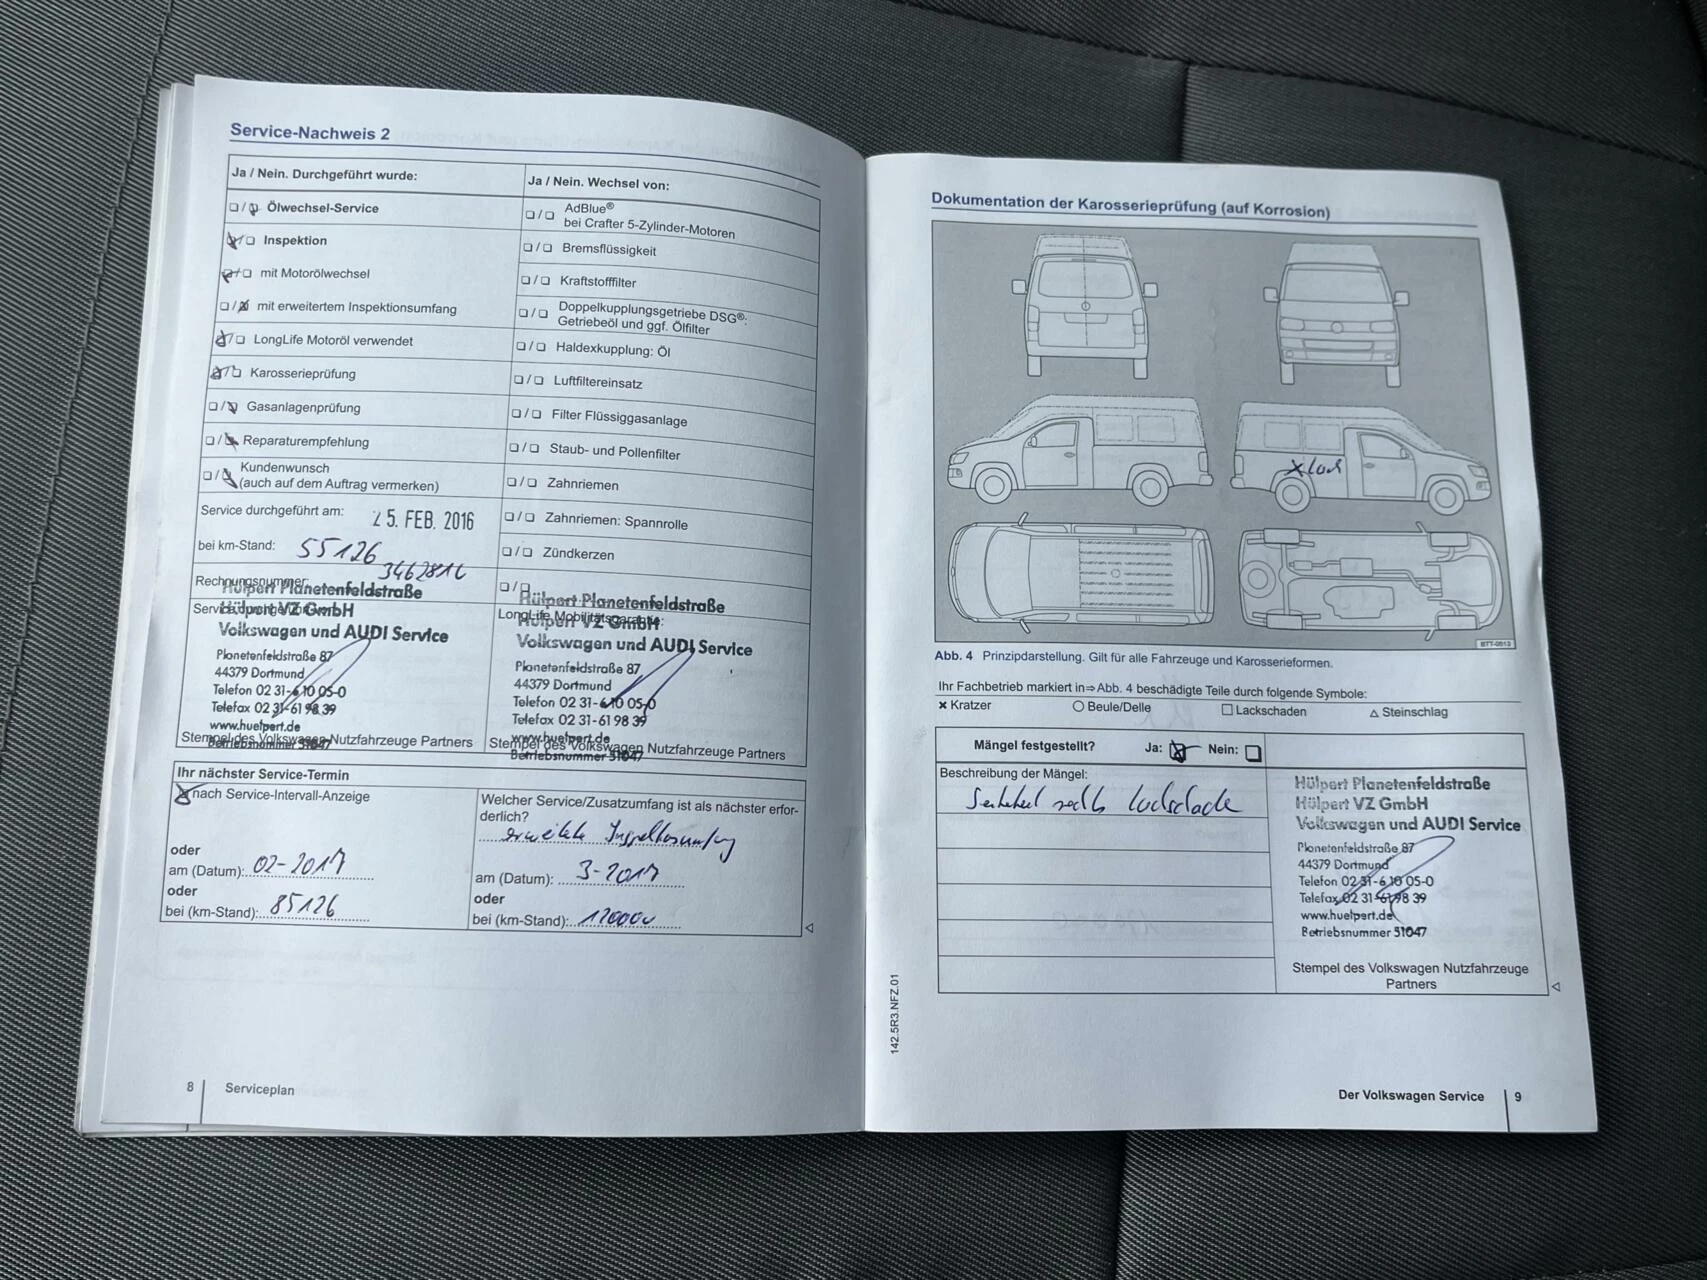 Service-Nachweis 2
Ja / Nein. Durchgeführt wurde:
Ölwechsel-Service
Inspektion
mit Motorölwechsel
mit erweitertem Inspektionsumfang
LongLife Motoröl verwendet
Karosserieprüfung
Gasanlagenprüfung
Reparaturempfehlung
Kundenwunsch
(auch auf dem Auftrag vermerken)
Service durchgeführt am: 25. FEB. 2016
bei km-Stand: 55126
Rechnungsnummer:
Hülpert Planetenfeldstraße
Hülpert VZ GmbH
Volkswagen und AUDI Service
Planetenfeldstraße 87
44379 Dortmund
Telefon 02 31-6 10 05-0
Telefax 02 31-61 98 39
www.huelpert.de
Betriebsnummer 51047
Stempel des Volkswagen Nutzfahrzeuge Partners
Ja / Nein. Wechsel von:
AdBlue®
bei Crafter 5-Zylinder-Motoren
Bremsflüssigkeit
Kraftstofffilter
Doppelkupplungsgetriebe DSG®:
Getriebeöl und ggf. Ölfilter
Haldexkupplung: Öl
Luftfiltereinsatz
Filter Flüssiggasanlage
Staub- und Pollenfilter
Zahnriemen
Zahnriemen: Spannrolle
Zündkerzen
LongLife Mobilitätsgarantie:
Hülpert Planetenfeldstraße
Hülpert VZ GmbH
Volkswagen und AUDI Service
Planetenfeldstraße 87
44379 Dortmund
Telefon 02 31-6 10 05-0
Telefax 02 31-61 98 39
www.huelpert.de
Betriebsnummer 51047
Stempel des Volkswagen Nutzfahrzeuge Partners
Ihr nächster Service-Termin
nach Service-Intervall-Anzeige
oder
am (Datum): 02-2017
oder
bei (km-Stand): 85126
Welcher Service/Zusatzumfang ist als nächster erfor-
derlich?
am (Datum): 3-2017
oder
bei (km-Stand): 120000
8
Serviceplan
Dokumentation der Karosserieprüfung (auf Korrosion)
BTT-0513
Abb. 4 Prinzipdarstellung. Gilt für alle Fahrzeuge und Karosserieformen.
Ihr Fachbetrieb markiert in⇒Abb. 4 beschädigte Teile durch folgende Symbole:
× Kratzer ○ Beule/Delle □ Lackschaden △ Steinschlag
Mängel festgestellt? Ja: Nein:
Beschreibung der Mängel:
Hülpert Planetenfeldstraße
Hülpert VZ GmbH
Volkswagen und AUDI Service
Planetenfeldstraße 87
44379 Dortmund
Telefon 02 31-6 10 05-0
Telefax 02 31-61 98 39
www.huelpert.de
Betriebsnummer 51047
Stempel des Volkswagen Nutzfahrzeuge
Partners
142.5R3.NFZ.01
Der Volkswagen Service
9